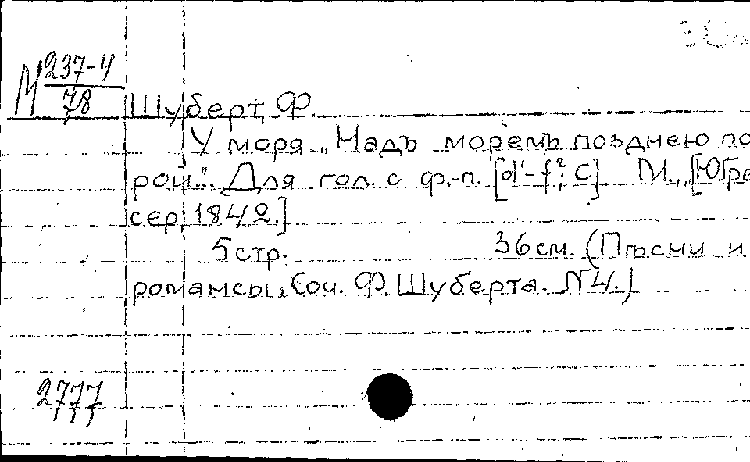 М 237-4
78
Шуберт, Ф.
У моря „Надъ моремъ позднею по
рой". Для гол. с ф.-п. [d'-f²; C] М., [Югре
сер, 1842.]
5 стр. 36 см. (Пѣсни и
романсы. Соч. Ф. Шуберта. N4.)
2777